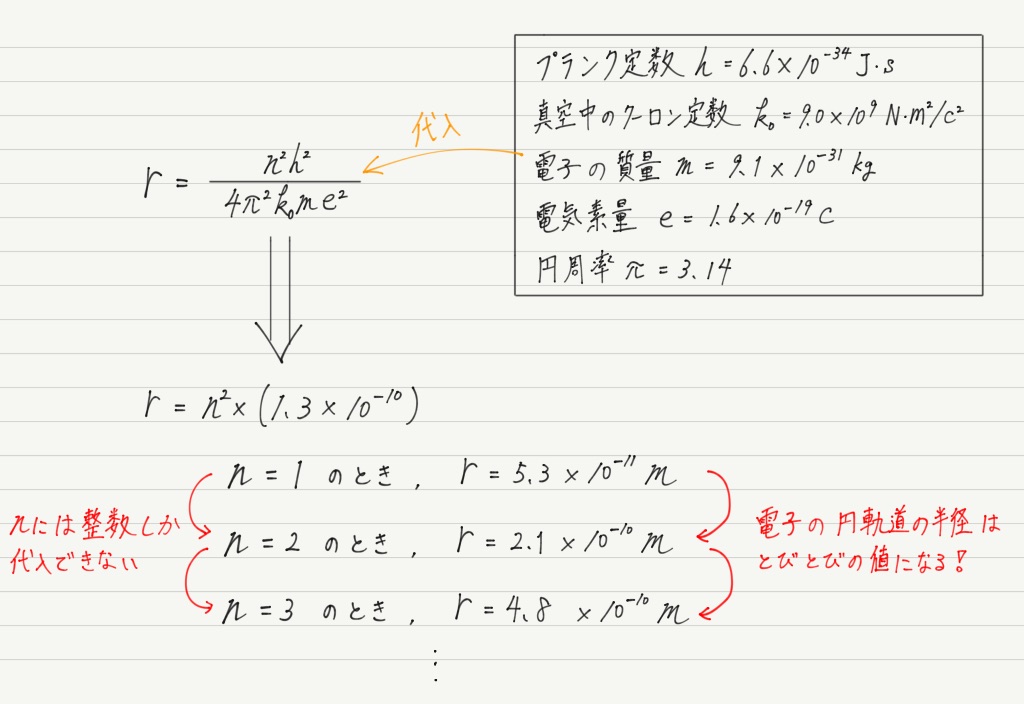 プランク定数 h = 6.6 × 10⁻³⁴ J・s
真空中のクーロン定数 k₀ = 9.0 × 10⁹ N・m²/c²
電子の質量 m = 9.1 × 10⁻³¹ kg
電気素量 e = 1.6 × 10⁻¹⁹ C
円周率 π = 3.14
代入
r = n²h² / 4π²k₀me²
r = n² × (1.3 × 10⁻¹⁰)
n = 1 のとき, r = 5.3 × 10⁻¹¹ m
n = 2 のとき, r = 2.1 × 10⁻¹⁰ m
n = 3 のとき, r = 4.8 × 10⁻¹⁰ m
⋮
nには整数しか
代入できない
電子の円軌道の半径は
とびとびの値になる!